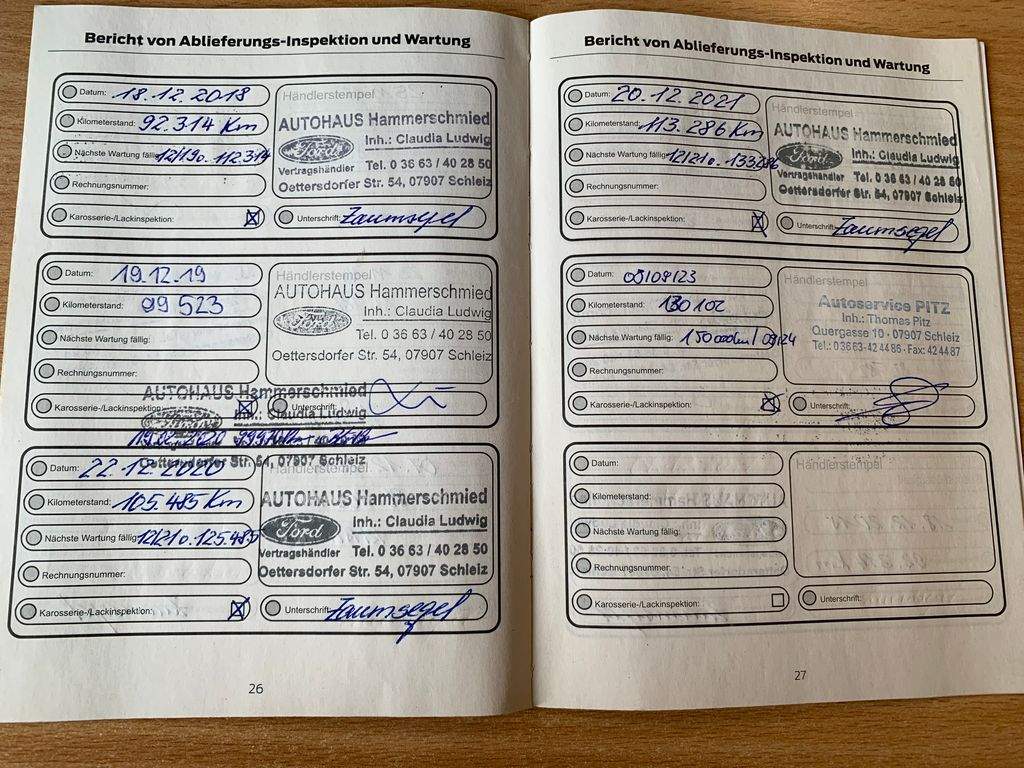 Bericht von Ablieferungs-Inspektion und Wartung
Datum: 18.12.2018
Kilometerstand: 92.314 Km
Nächste Wartung fällig: 12/19 o. 112.314
Rechnungsnummer:
Karosserie-/Lackinspektion:
Händlerstempel
AUTOHAUS Hammerschmied
Ford
Inh.: Claudia Ludwig
Vertragshändler Tel. 0 36 63 / 40 28 50
Oettersdorfer Str. 54, 07907 Schleiz
Unterschrift: Zaumsegel
Datum: 19.12.19
Kilometerstand: 99 523
Nächste Wartung fällig:
Rechnungsnummer:
Karosserie-/Lackinspektion:
Händlerstempel
AUTOHAUS Hammerschmied
Ford
Inh.: Claudia Ludwig
Tel. 0 36 63 / 40 28 50
Oettersdorfer Str. 54, 07907 Schleiz
Unterschrift:
AUTOHAUS Hammerschmied
Inh.: Claudia Ludwig
Oettersdorfer Str. 54, 07907 Schleiz
Datum: 22.12.2020
Kilometerstand: 105.485 Km
Nächste Wartung fällig: 12/21 o. 125.485
Rechnungsnummer:
Karosserie-/Lackinspektion:
Händlerstempel
AUTOHAUS Hammerschmied
Ford
Inh.: Claudia Ludwig
Vertragshändler Tel. 0 36 63 / 40 28 50
Oettersdorfer Str. 54, 07907 Schleiz
Unterschrift: Zaumsegel
26
Bericht von Ablieferungs-Inspektion und Wartung
Datum: 20.12.2021
Kilometerstand: 113.286 Km
Nächste Wartung fällig: 12/21 o. 133286
Rechnungsnummer:
Karosserie-/Lackinspektion:
Händlerstempel
AUTOHAUS Hammerschmied
Ford
Inh.: Claudia Ludwig
Vertragshändler Tel. 0 36 63 / 40 28 50
Oettersdorfer Str. 54, 07907 Schleiz
Unterschrift: Zaumsegel
Datum:
Kilometerstand: 130 102
Nächste Wartung fällig: 150000km / 09/24
Rechnungsnummer:
Karosserie-/Lackinspektion:
Händlerstempel
Autoservice PITZ
Inh.: Thomas Pitz
Quergasse 10 · 07907 Schleiz
Tel.: 03663-42 44 86 · Fax: 42 44 87
Unterschrift:
Datum:
Kilometerstand:
Nächste Wartung fällig:
Rechnungsnummer:
Karosserie-/Lackinspektion:
Händlerstempel
Unterschrift:
27